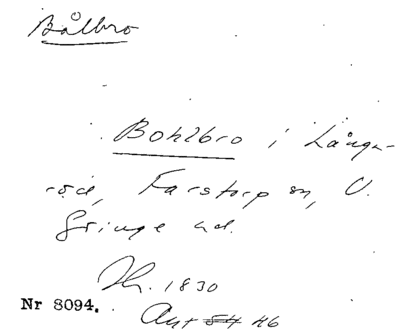 Bålbro
Bohlbro i Långa-
röd, Farstorp sn, V.
Göinge hd.
Jr. 1830
Nr 8094. Avt 54 46